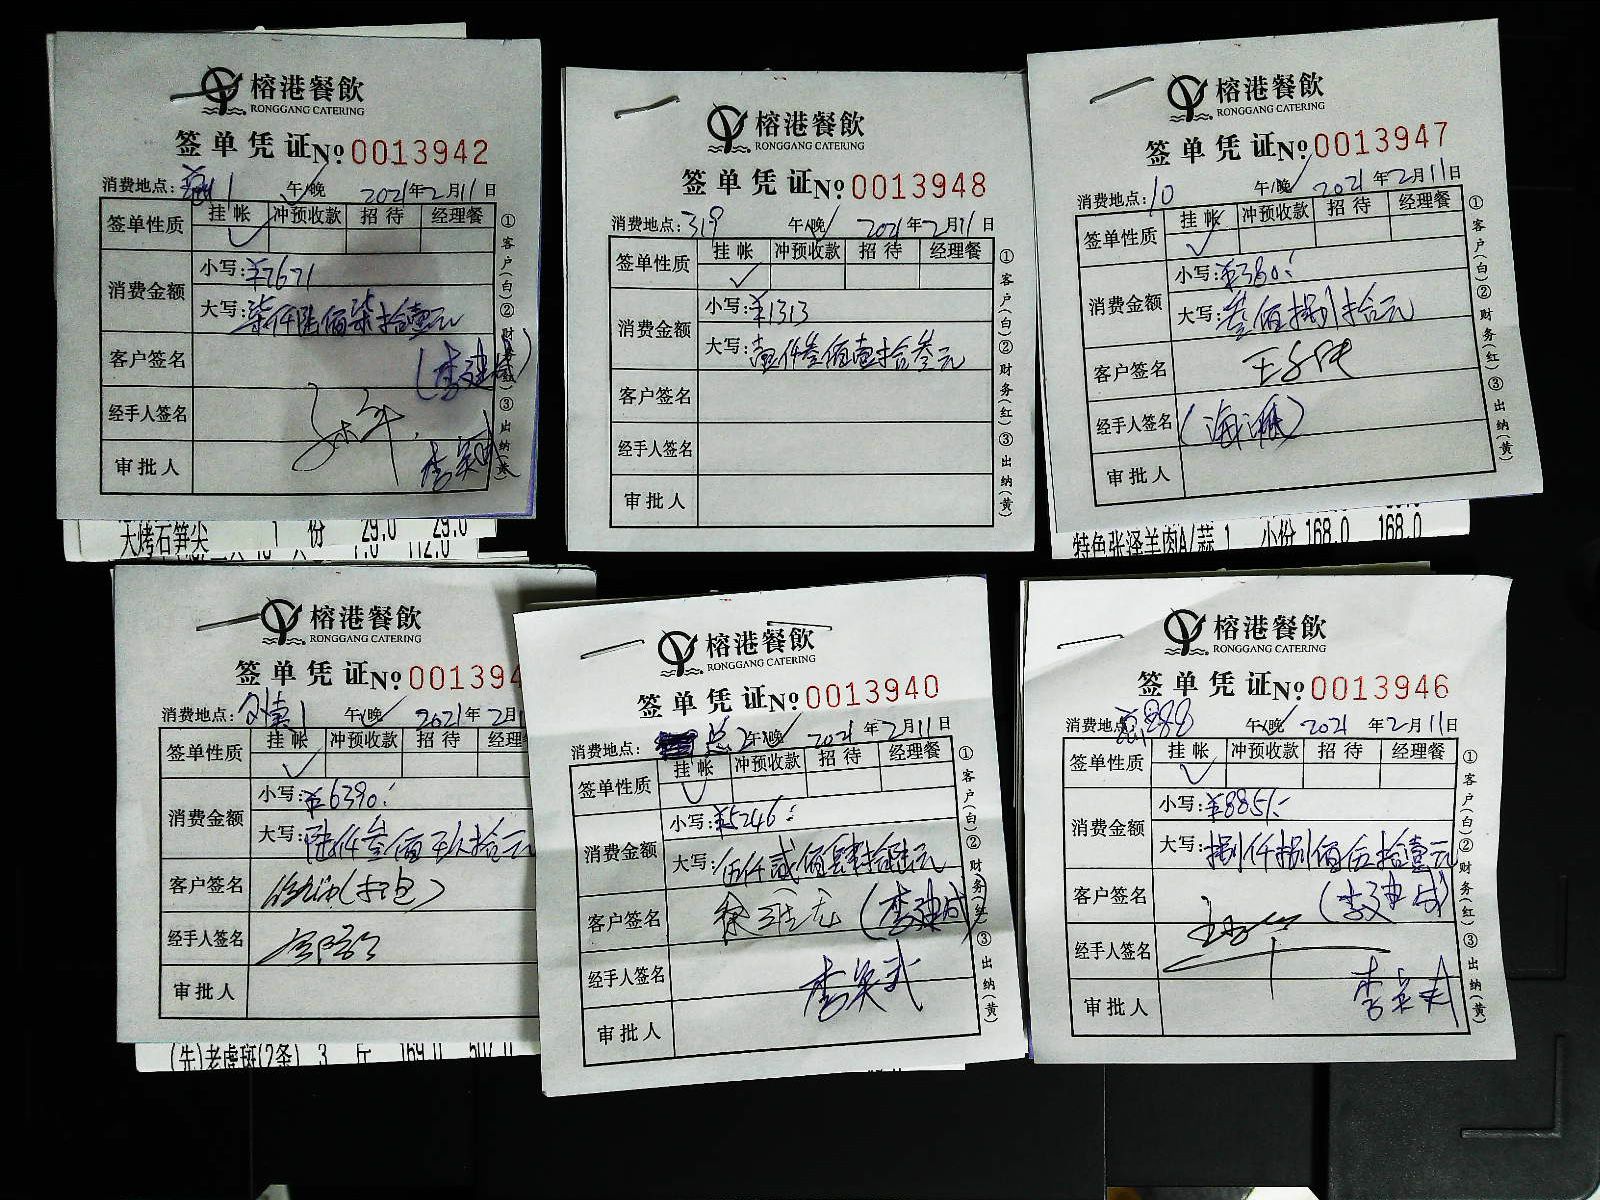 榕港餐飲
RONGGANG CATERING
签单凭证 No 0013942
消费地点: 1 午/晚 2021年2月11日
签单性质 挂帐 冲预收款 招待 经理餐
消费金额 小写: ¥7671
大写: 柒仟陆佰柒拾壹元
客户签名 (李建成)
经手人签名
审批人
①客户(白)②财务(红)③出纳(黄)
大烤石笋尖 1 份 29.0 29.0
榕港餐飲
RONGGANG CATERING
签单凭证 No 0013948
消费地点: 319 午/晚 2021年2月11日
签单性质 挂帐 冲预收款 招待 经理餐
消费金额 小写: ¥1313
大写: 壹仟叁佰壹拾叁元
客户签名
经手人签名
审批人
①客户(白)②财务(红)③出纳(黄)
榕港餐飲
RONGGANG CATERING
签单凭证 No 0013947
消费地点: 10 午/晚 2021年2月11日
签单性质 挂帐 冲预收款 招待 经理餐
消费金额 小写: ¥380:
大写: 叁佰捌拾元
客户签名
经手人签名
审批人
①客户(白)②财务(红)③出纳(黄)
特色张泽羊肉A/蒜 1 小份 168.0 168.0
榕港餐飲
RONGGANG CATERING
签单凭证 No 001394
消费地点: 1 午/晚 2021年2月1
签单性质 挂帐 冲预收款 招待 经理
消费金额 小写: ¥6390:
大写: 陆仟叁佰玖拾元
客户签名
经手人签名
审批人
(先)老虎斑(2条) 3 斤 169.0 507.0
榕港餐飲
RONGGANG CATERING
签单凭证 No 0013940
消费地点: 总2 午/晚 2021年2月11日
签单性质 挂帐 冲预收款 招待 经理餐
消费金额 小写: ¥5246:
大写: 伍仟贰佰肆拾陆元
客户签名 (李建成)
经手人签名
审批人
①客户(白)②财务(红)③出纳(黄)
榕港餐飲
RONGGANG CATERING
签单凭证 No 0013946
消费地点: 总888 午/晚 2021年2月11日
签单性质 挂帐 冲预收款 招待 经理餐
消费金额 小写: ¥8851:-
大写: 捌仟捌佰伍拾壹元
客户签名 (李建成)
经手人签名
审批人
①客户(白)②财务(红)③出纳(黄)